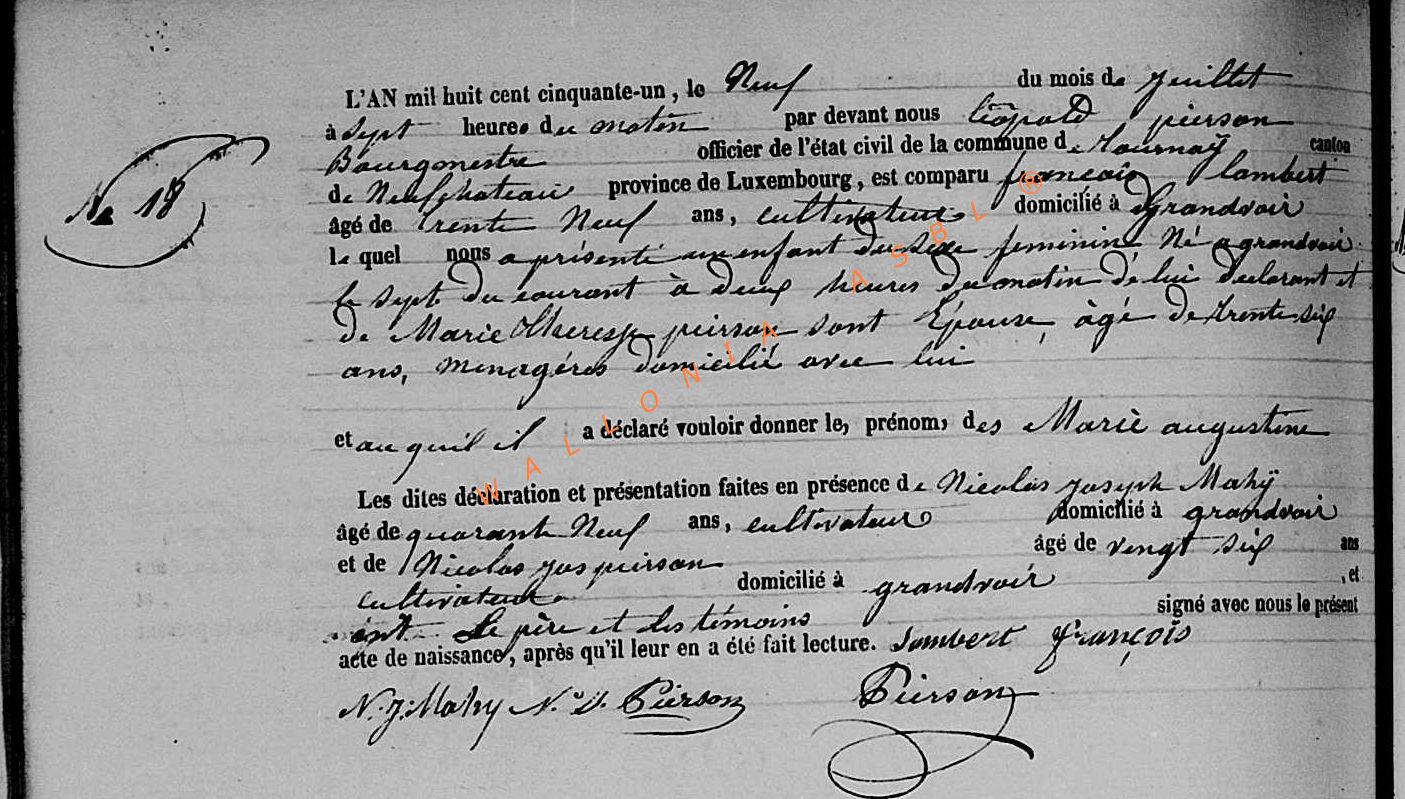 L'AN mil huit cent cinquante-un, le Neuf du mois de juillet
à sept heures du matin par devant nous Léopold pierson
Bourgmestre officier de l'état civil de la commune de Tournaÿ canton
de Neufchateau province de Luxembourg, est comparu françois lambert
âgé de trente Neuf ans, cultivateur domicilié à Grandvoir
le quel nous a présenté un enfant du sexe feminin Né a grandvoir
le sept du courant à deux heures du matin de lui declarant et
de Marie Therese pierson sont Epouse, âgé de trente six
ans, menagéres domicilié avec lui
et au quil il a déclaré vouloir donner le, prénom, des Marie augustine
Les dites déclaration et présentation faites en présence de Nicolas joseph Mahÿ
âgé de quarante Neuf ans, cultivateur domicilié à grandvoir
et de Nicolas jos pierson âgé de vengt six ans
cultivateur domicilié à grandvoir , et
ont Le père et les témoins signé avec nous le présent
acte de naissance, après qu'il leur en a été fait lecture. Lambert françois
N. J. Mahy N. J. Pierson Pierson
No 18
WALLONIA ASBL ®